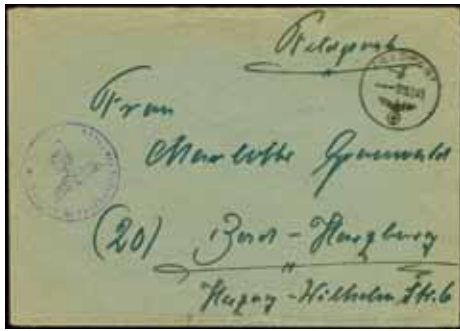 Feldpost
Frau
Charlotte Grunwald
(20) Bad-Harzburg
Herzog-Wilhelm Str. 6